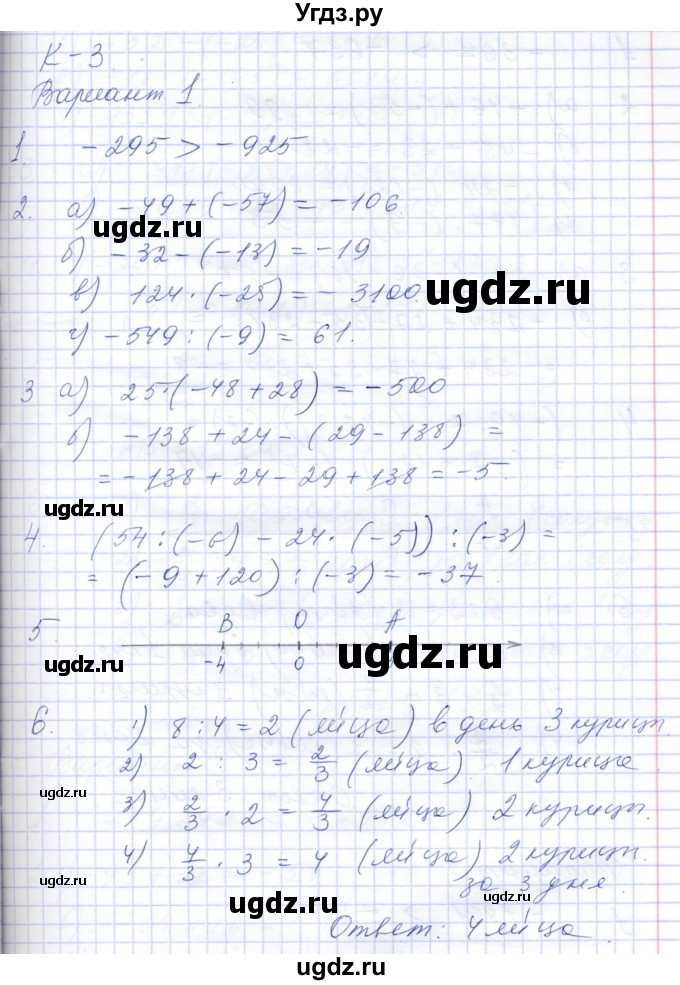 Угдз.ру
К-3
Вариант 1
1. -295 > -925
2. а) -49 + (-57) = -106.
ugdz.ru
б) -32 - (-13) = -19
в) 124 · (-25) = -3100.
ugdz.ru
г) -549 : (-9) = 61.
3 а) 25·(-48 + 28) = -500
б) -138 + 24 - (29 - 138) =
= -138 + 24 - 29 + 138 = -5.
ugdz.ru
4. (54 : (-6) - 24 · (-5)) : (-3) =
= (-9 + 120) : (-3) = -37
5. В О А
-4 0
ugdz.ru ugdz.ru
6. 1) 8 : 4 = 2 (яйца) в день 3 куриц.
2) 2 : 3 = 2/3 (яйца) 1 курица
ugdz.ru
3) 2/3 · 2 = 4/3 (яйца) 2 курицы.
4) 4/3 · 3 = 4 (яйца) 2 куриц.
за 3 дня.
ugdz.ru ugdz.ru
Ответ: 4 яйца
ugdz.ru
ugdz.ru